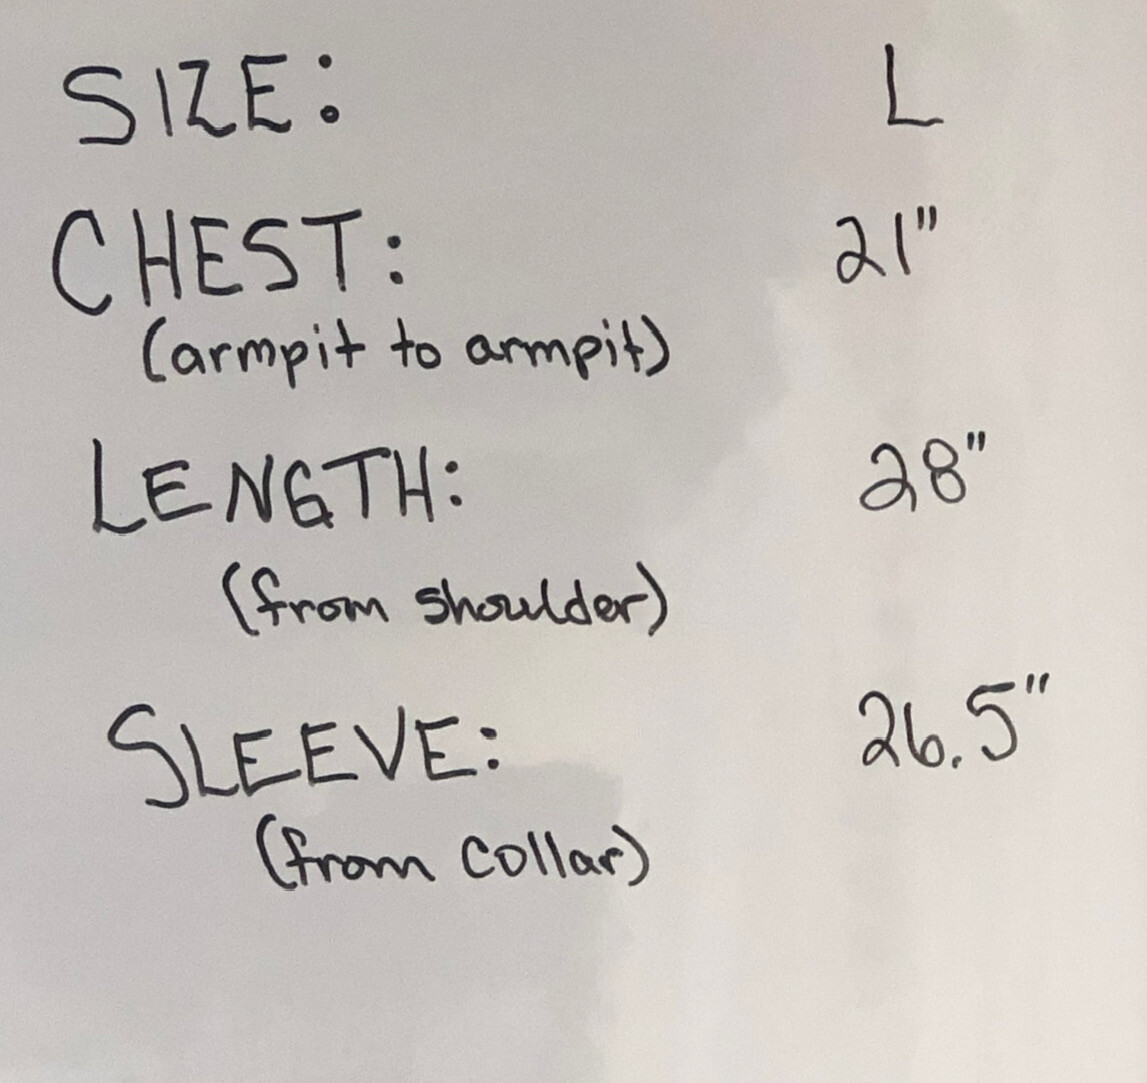 SIZE: L
CHEST: 21"
(armpit to armpit)
LENGTH: 28"
(from shoulder)
SLEEVE: 26.5"
(from collar)